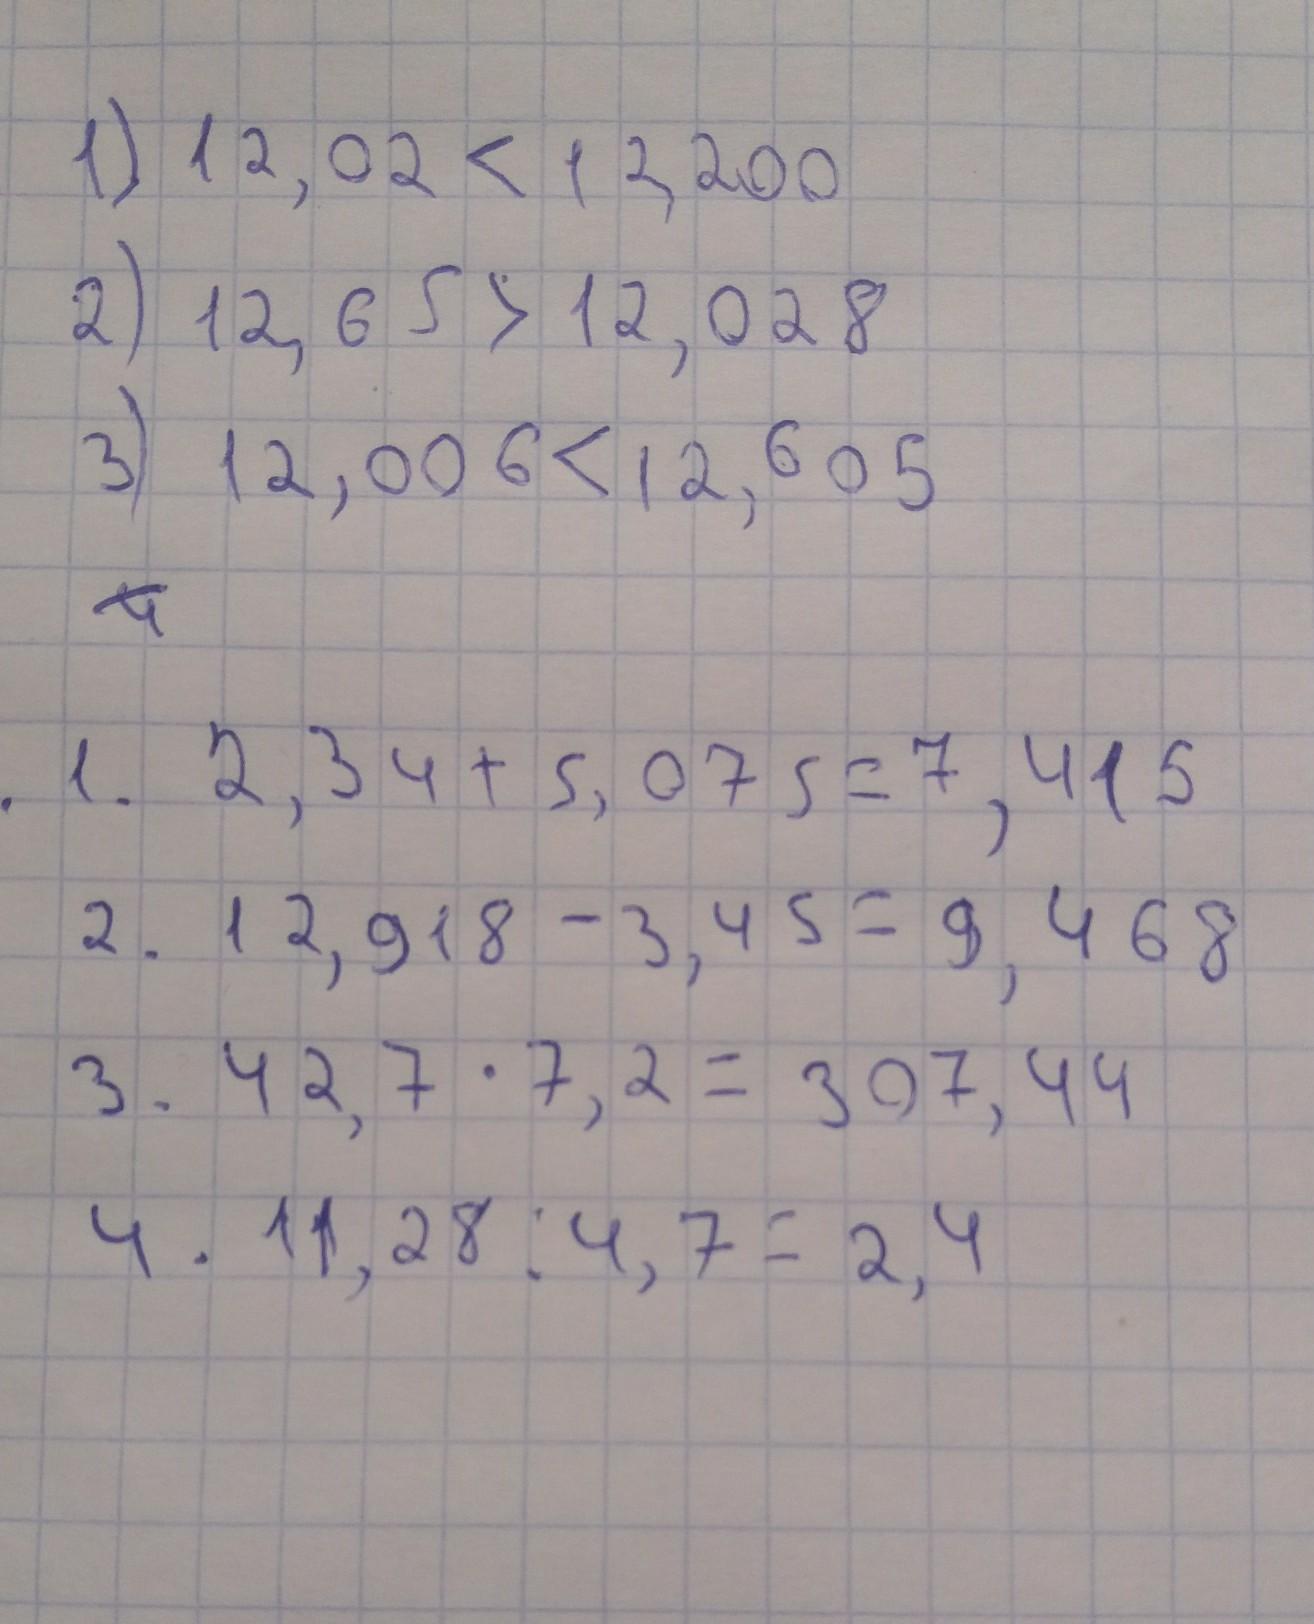 1) 12,02 < 12,200
2) 12,65 > 12,028
3) 12,006 < 12,605
1. 2,34 + 5,075 = 7,415
2. 12,918 - 3,45 = 9,468
3. 42,7 · 7,2 = 307,44
4. 11,28 : 4,7 = 2,4